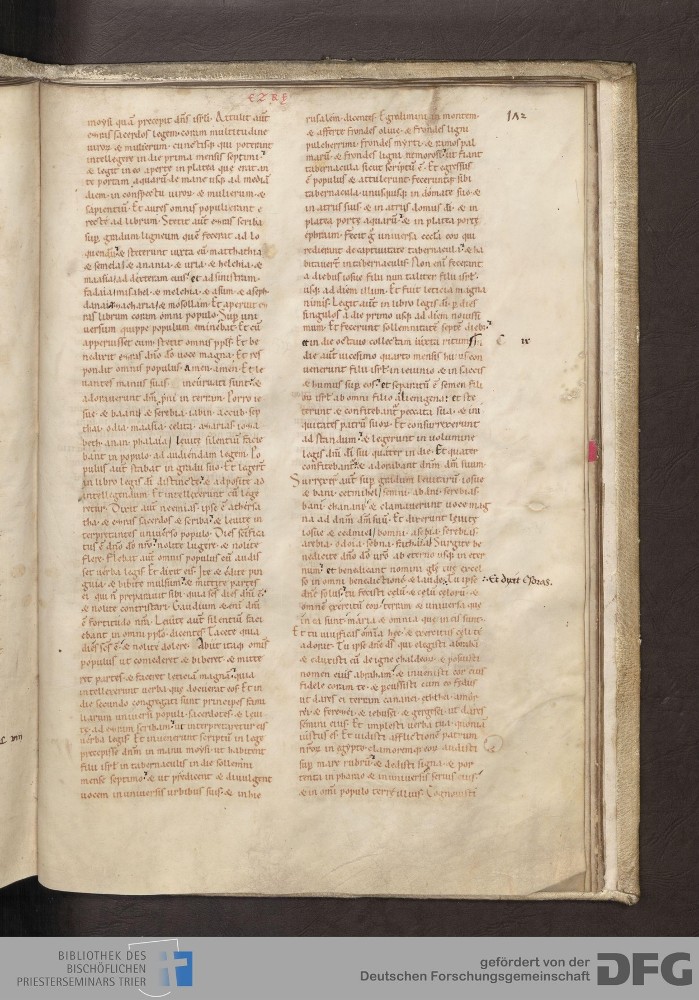 EZRE
142
moysi quā precepit dn̄s isrl̄. Attulit aut̄
esdras sacerdos legem coram multitudine
uiroꝝ & mulierum cunctisq; qui poterant
intellegere in die prima mensis septimi
& legit in eo aperte in platea que erat an
te portam aquarū de mane usq; ad mediā
diem in conspectu uiroꝝ & mulierum &
sapientiū. Et aures omnis populi erant e
recte ad librum. Stetit aut̄ esdras scriba
sup̄ gradum ligneum quē fecerat ad lo
quendū & steterunt iuxta eū matthathia
& semeia & anania & uria & helchia &
maasia ad dexteram eius et ad sinistram
fadaia misahel & melchia & asum & aseph
dana zacharia & mosollam. Et aperuit es
ras librum coram omni populo. Sup̄ uni
uersum quippe populum eminebat. Et cū
apperuisset eum stetit omnis ppl̄s. Et be
nedixit esras dn̄o dō uoce magna. Et res
pondit omnis populus amen amen. Et le
uantes manus suas incuruati sunt &
adorauerunt dm̄ pni in terram. Porro ie
sue & baani & serebia iabin accub sep
thai odia maasia celita azarias ioza
beth anan phalaia leuite silentiū facie
bant in populo ad audiendam legem. Po
pulus aut̄ stabat in gradu suo. Et legerr̄
in libro legis dī distincte & adposite ad
intellegendum. Et intellexerunt cū lege
retur. Dixit aut̄ neemias ipse ē athersa
tha & esdras sacerdos & scriba & leuite in
terpretantes uniuerso populo. Dies scīfica
tus ē dn̄o dō nr̄o nolite lugere & nolite
flere. Flebat aut̄ omnis populus cū audis
set uerba legis. Et dixit eis Ite & edite pin
guia & bibite mulsum & mittite partes
ei qui n̄ preparauit sibi quia scs̄ dies dn̄i ē
& nolite contristari. Gaudium & eni dn̄i
ē fortitudo nr̄a. Leuite aut̄ silentiū faci
ebant in omni pplo dicentes Tacete quia
dies scs̄ ē & nolite dolere. Abiit itaq; omīs
populus ut comederet & biberet & mitte
ret partes & faceret leticiā magnā quia
intellexerunt uerba que docuerat eos. Et in
die secundo congregati sunt principes fami
liarum uniuersi populi sacerdotes & leui
te ad esdram scribam ut interpretaretur eis
uerba legis. Et inuenerunt scriptū in lege
precepisse dn̄m in manu moysi ut habitent
filii isrl̄ in tabernaculis in die sollemni
mense septimo & ut predicent & diuulgent
uocem in uniuersis urbibus suis & in hie
rusalem dicentes. Egredimini in montem
& afferte frondes oliue & frondes ligni
pulcherrimi frondes myrti & ramos pal
marū & frondes ligni nemorosi ut fiant
tabernacula sicut scriptū ē. Et egressus
ē populus & attulerunt feceruntq; sibi
tabernacula unusquisq; in domate suo &
in atriis suis & in atriis domus dī & in
platea porte aquarū & in platea porte
ephraim. Fecit g̊ uniuersa eccl̄a eoꝝ qui
redierant de captiuitate tabernacula & ha
bitauerr̄ in tabernaculis. Non enī fecerant
a diebus iosue filii nun taliter filii isrl̄
usq; ad diem illum. Et fuit leticia magna
nimis. Legit aut̄ in libro legis dī p̄ dies
singulos a die primo usq; ad diem nouissi
mum. Et fecerunt sollemnitatē septē dieb;
et in die octauo collectam iuxta ritum. In
die aut̄ uicesimo quarto mensis huius con
uenerunt filii isrl̄ in ieiunio & in saccis
& humus sup̄ eos et separatū ē semen fili
oꝝ isrl̄ ab omni filio alienigena et ste
terunt & confitebant̄ peccata sua & ini
quitates patrū suoꝝ. Et consurrexerunt
ad standum & legerunt in uolumine
legis dn̄i dī sui quater in die. Et quater
confitebant̄ & adorabant dn̄m dm̄ suum.
Surrexer̄ aut̄ sup̄ gradum leuitarū iosue
& bani cetmihel semni abani serebias
bani chanani & clamauerunt uoce mag
na ad dn̄m dm̄ suū. Et dixerunt leuite
iosue & cedmiel bomni asebia serebias
arebia odoia sebna fathaia Surgite be
nedicite dn̄o dō uro ab eterno usq; in eter
num et benedicant nomini gl̄e tue excel
so in omni benedictione & laude. Tu ipse
dn̄e solus tu fecisti celū & celū celoꝝ &
omnē exercitū eoꝝ terram & uniuersa que
in ea sunt maria & omnia que in eis sunt.
Et tu uiuificas omīa hec & exercitus celi te
adorat. Tu ipse dn̄e ds̄ qui elegisti abrahā
& eduxisti eū de igne chaldeoꝝ & posuisti
nomen eius abraham & inuenisti cor eius
fidele coram te & pepigisti cum eo fedus
ut dares ei terram cananei ethei & amor
rei & ferezei & iebusei & gergesei ut dares
semini eius. Et implesti uerba tua quoniā
iustus es. Et uidisti afflictionē patrum
nr̄oꝝ in egypto clamoremq; eoꝝ audisti
sup̄ mare rubrū & dedisti signa & por
tenta in pharao & in uniuersis seruis eius
& in omi populo terre illius. Cognouisti
C ix
Et dixit Esdras.
BIBLIOTHEK DES
BISCHÖFLICHEN
PRIESTERSEMINARS TRIER
gefördert von der
Deutschen Forschungsgemeinschaft
DFG